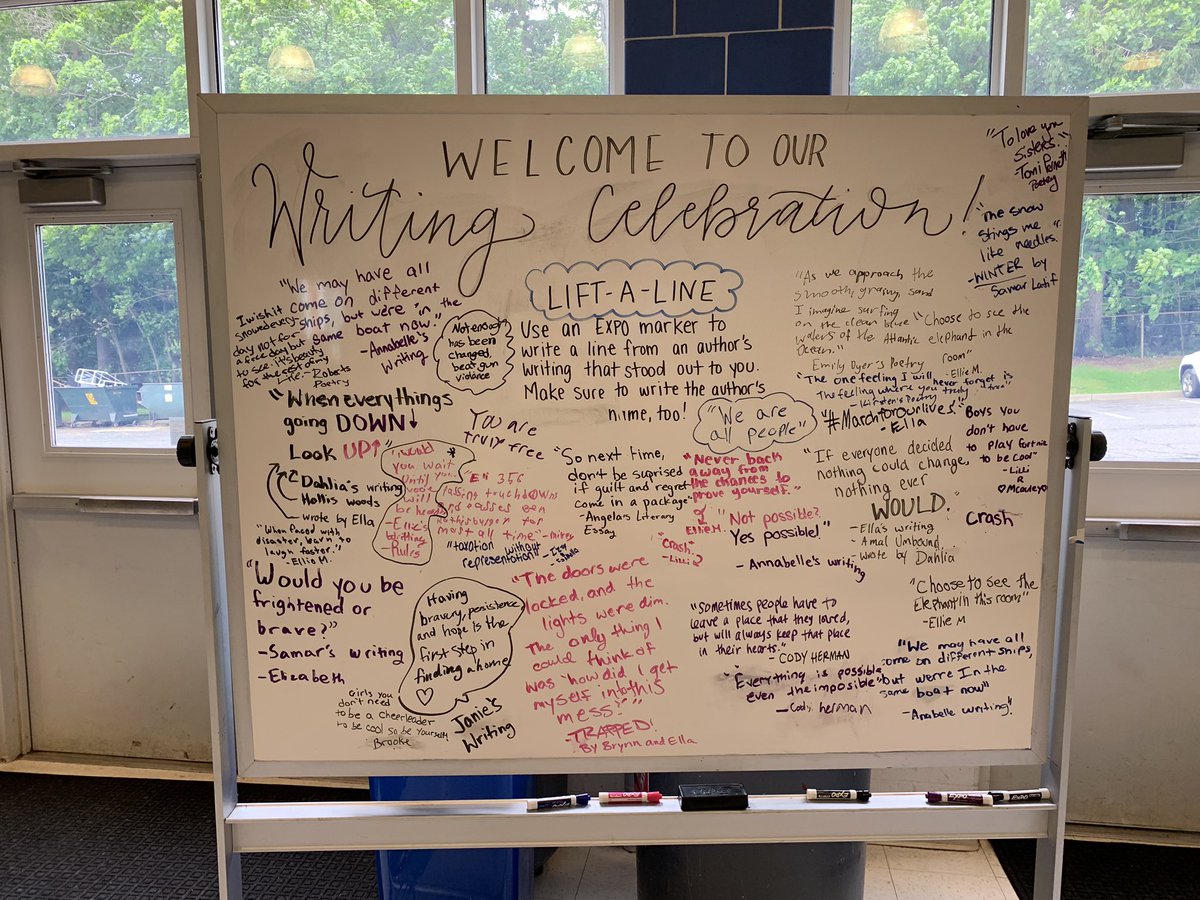 WELCOME TO OUR
Writing Celebration!
LIFT-A-LINE
Use an EXPO marker to
write a line from an author's
writing that stood out to you.
Make sure to write the author's
name, too!
"We may have all
come on different
ships, but were in the
same boat now."
-Annabelle's
Writing
I wish it
snowed every-
day not for
a free day but
to see its beauty
for the rest of my
life.- Roberts
Poetry
Not enough
has been
changed,
beat gun
violence
"When everythings
going DOWN↓
Look UP↑"
Dahlia's writing
Hollis woods
- wrote by Ella
You are
truly free
"I would
you wait
until you
voice
will
be heard"
-Ellie's
Writing
-Rules
"En 356
passing touchdowns
and passes Ben
Rothisburger for
most all time"
"taxation without
representation"
"When faced with
disaster, learn to
laugh faster."
-Ellie M.
"Would you be
frightened or
brave?"
-Samar's writing
-Elizabeth
Having
bravery, persistence
and hope is the
first step in
finding a home
♡
Janie's
Writing
Girls you
don't need
to be a cheerleader
to be cool so be yourself
Brooke
"So next time,
don't be suprised
if guilt and regret
come in a package"
-Angela's Literary
Essay
"The doors were
locked, and the
lights were dim.
The only thing I
could think of
was "how did I get
myself into this
mess?""
-TRAPPED!
By Brynn and Ella
"We are
all people"
"Never back
away from
the chances to
prove yourself."
Ellie M.
"crash"
-Lilli R
"Not possible?
Yes possible!"
- Annabelle's writing
"Sometimes people have to
leave a place that they loved,
but will always keep that place
in their hearts."
- CODY HERMAN
"Everything is possible,
even the imposible"
-Cody herman
"As we approach the
smooth, grainy, sand
I imagine surfing
on the clean blue
waters of the Atlantic
Ocean."
Emily Dyer's Poetry
"Choose to see the
elephant in the
room"
-Ellie M.
"The one feeling I will never forget is
The feeling where you truly free"
-Kirsten's Poetry
"#Marchforourlives."
-Ella
"If everyone decided
nothing could change,
nothing ever
WOULD."
- Ella's writing
- Amal Unbound
- wrote by Dahlia
Boys you
don't have
to play fortnite
to be cool"
- Lilli
R
♡Mcauleyo
crash
"Choose to see the
Elephant in this room"
-Ellie M
"We may have all
come on different ships,
but we're In the
same boat now"
-Anabelle writing".
"To love you
Sisters."
-Toni
Poetry
"The snow
stings me
like needles."
-WINTER by
Samar Latif
EXPO
EXPO
EXPO
EXPO